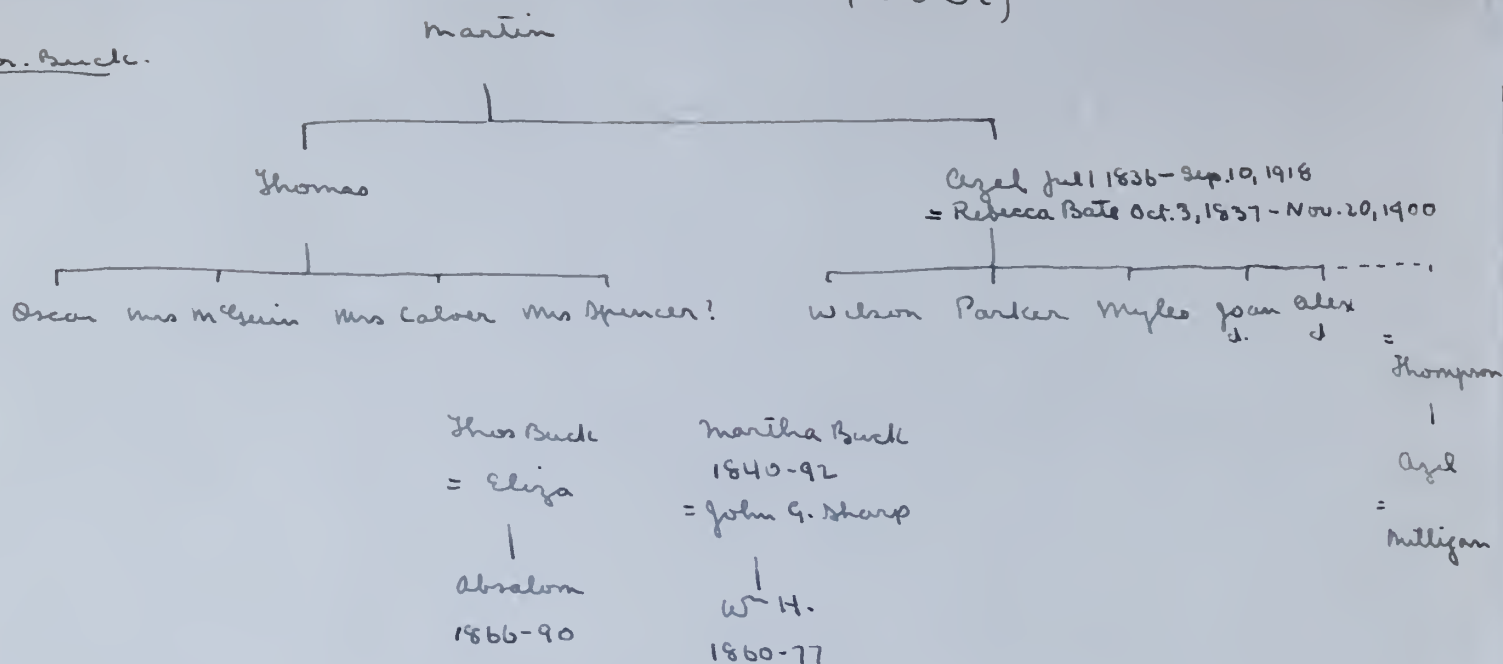 Martin
r. Buck.
Thomas
Azel Jul 1 1836 - Sep. 10, 1918
= Rebecca Bate Oct. 3, 1837 - Nov. 20, 1900
Oscar Mrs McGuin Mrs Calver Mrs Spencer?
Wilson Parker Myles Joan Alex
d. d
=
Thompson
Azel
=
Milligan
Thos Buck
= Eliza
Absalom
1866-90
Martha Buck
1840-92
= John G. Sharp
Wm H.
1860-77